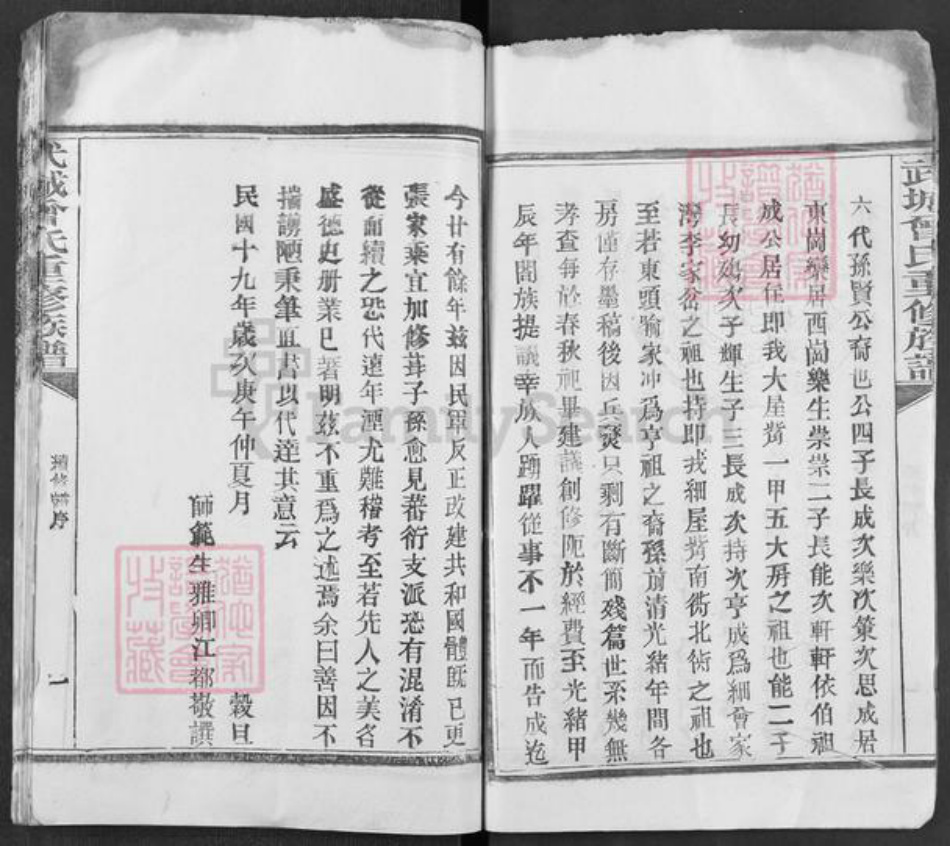 武城曾氏重修族譜
六代孫賢公裔也公四子長成次樂次策次思成居
東崗樂居西崗樂生崇崇二子長能次軒軒依伯祖
成公居住即我大屋背一甲五大房之祖也能二子
長幼次子輝生子三長成次持次亨成爲細會家
灣李家岔之祖也持即我細屋背南衖北衖之祖也
至若東頭喻家冲爲亨祖之裔孫前清光緒年間各
房僅存墨稿後因兵燹只剩有斷簡殘篇世系幾無
考查每於春秋祀畢建議創修阨於經費至光緒甲
辰年闔族提議幸族人踴躍從事不一年而告成迄
今廿有餘年茲因民軍反正改建共和國體既已更
張家乘宜加修葺子孫愈見蕃衍支派恐有混淆不
從而續之恐代遠年湮尤難稽考至若先人之美名
盛德史册業已著明茲不重爲之述焉余曰善因不
揣謭陋秉筆直書以代達其意云
民國十九年歲次庚午仲夏月 穀旦
師範生雅卿江都敬譔
武城曾氏重修族譜
續修譜序
一
猶他家譜學會收藏
猶他家譜學會收藏
FamilySearch